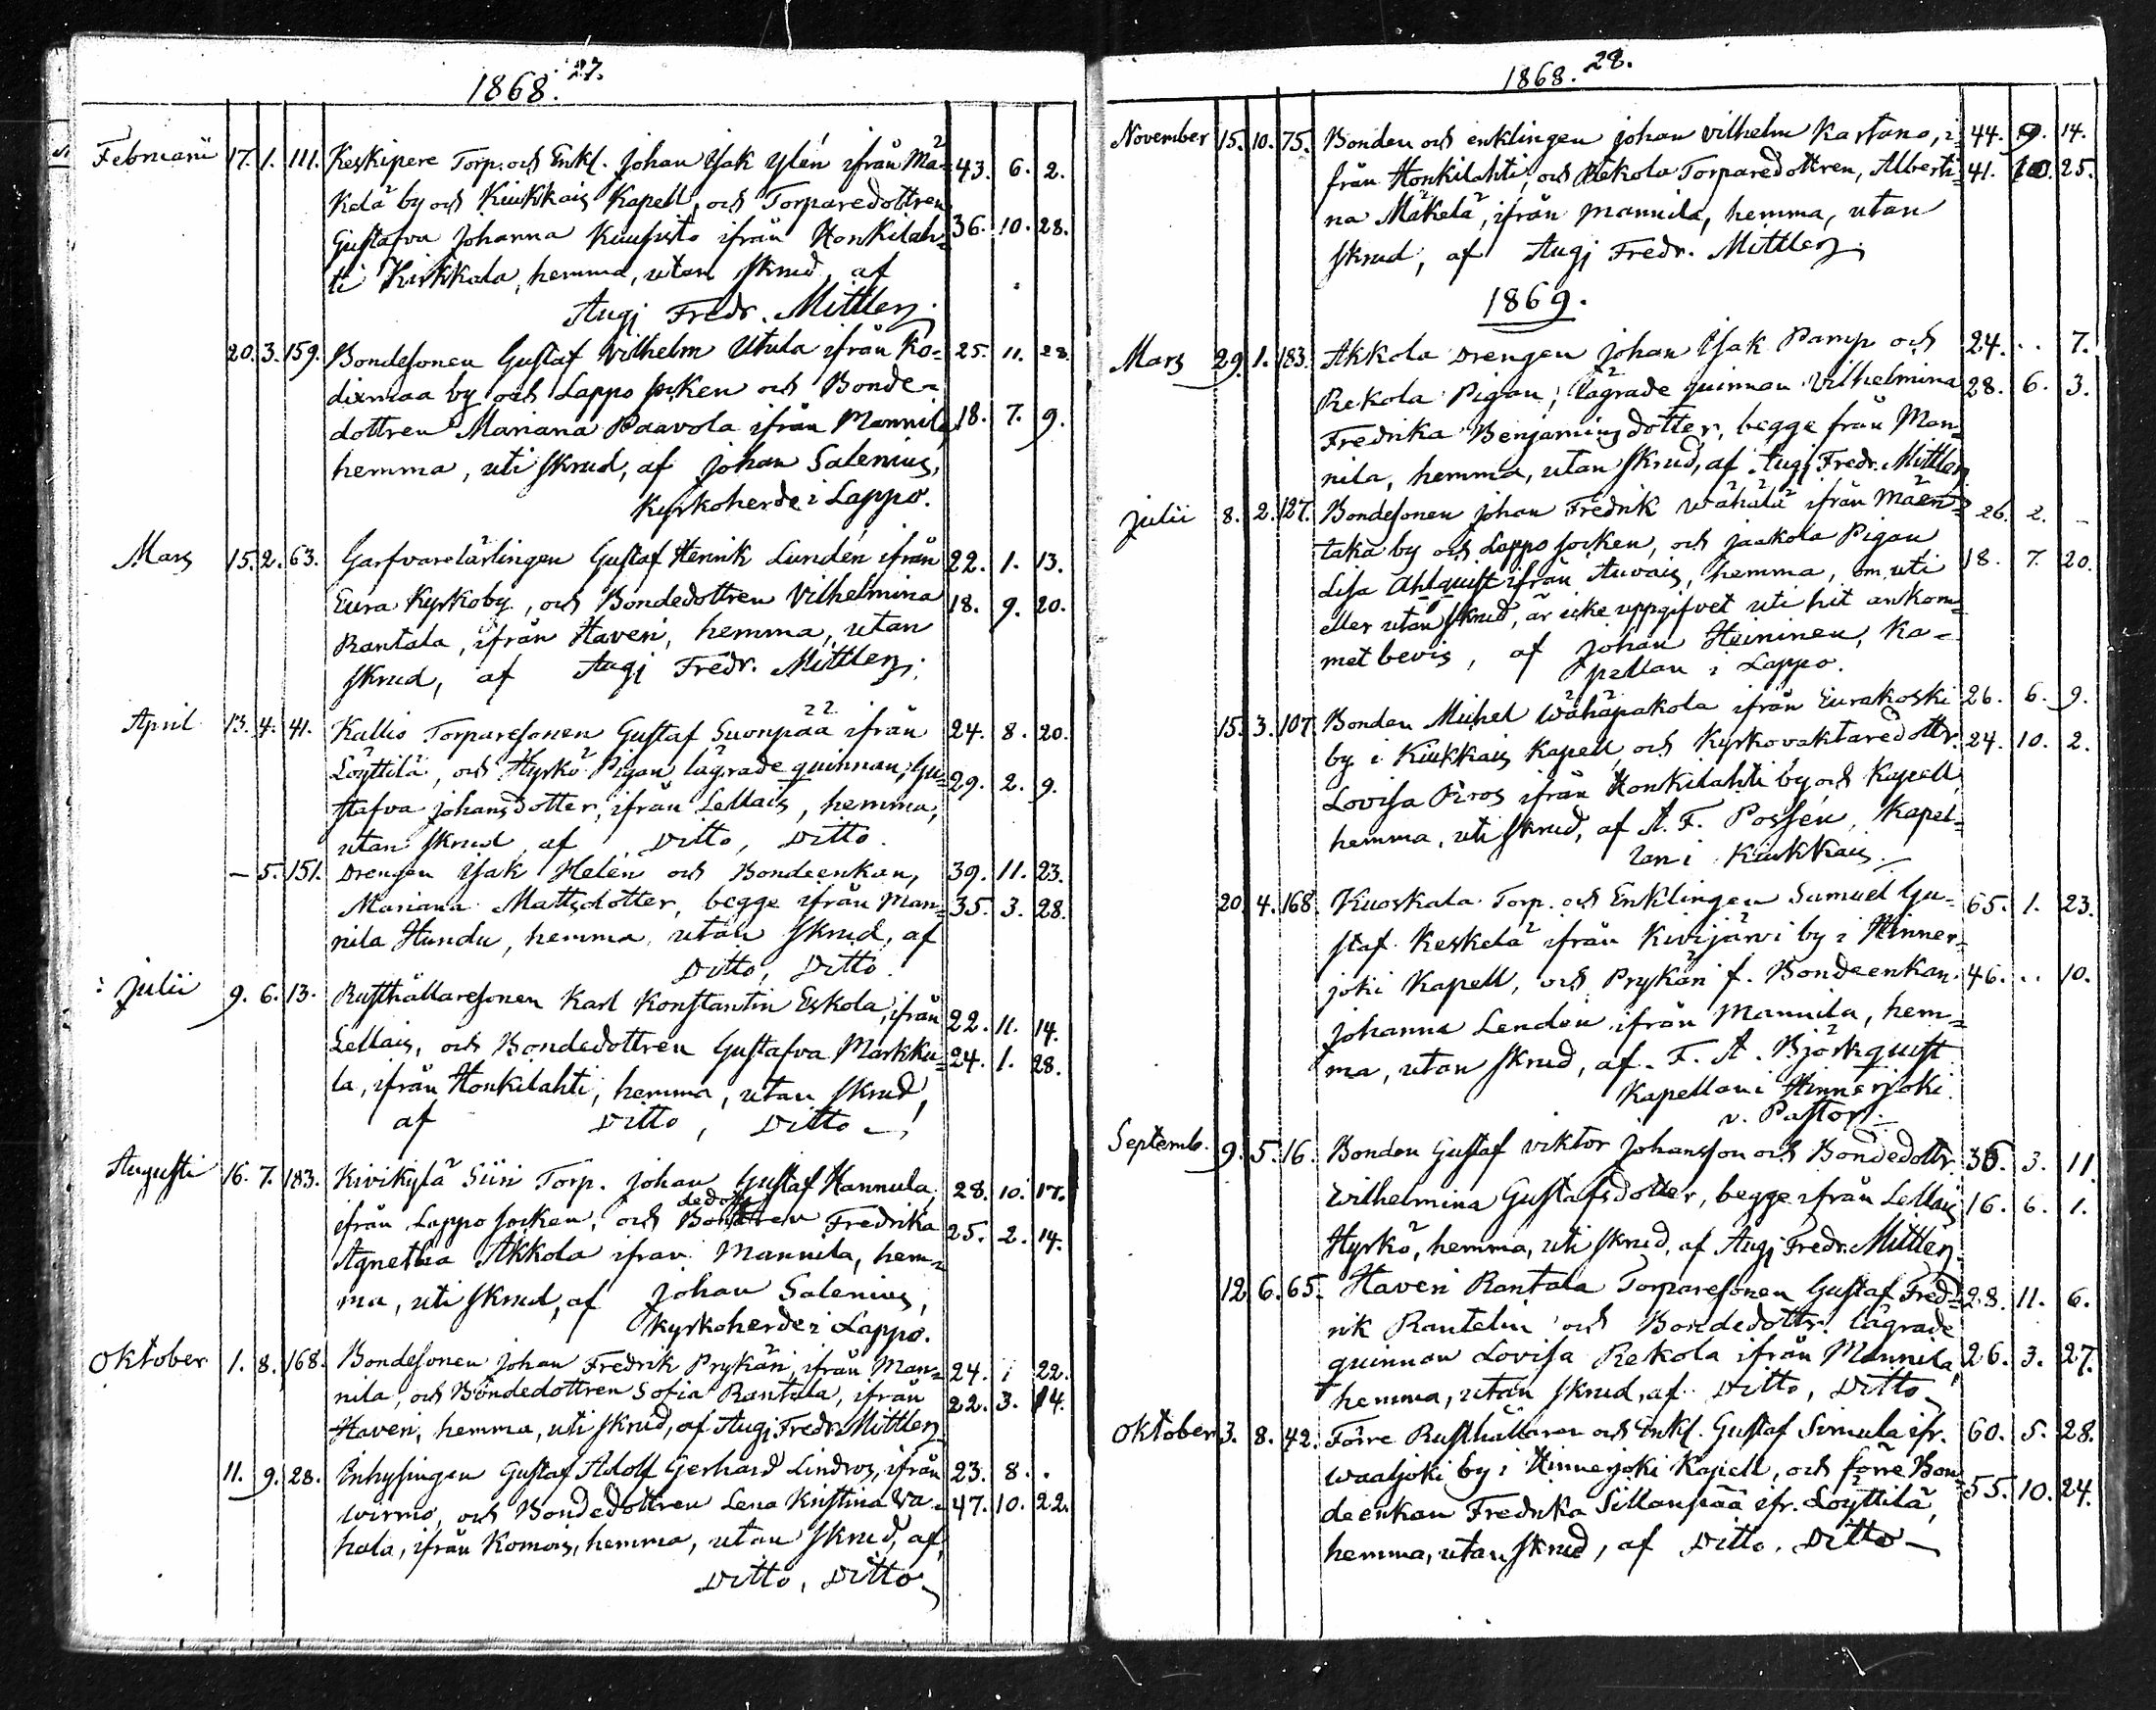 27.
1868.
Februarii 17. 1. 111. Keskipere Torp. och Enkl. Johan Isak Ylén ifrån Mä= 43. 6. 2.
kelä by och Kiukkais Kapell, och Torparedottren
Gustafva Johanna Kuusisto ifrån Honkilah= 36. 10. 28.
ti Kirkkala, hemma, utan skrud, af
Augj Fredr. Mittler.
20. 3. 159. Bondesonen Gustaf Vilhelm Utula ifrån Ko= 25. 11. 28.
dixmaa by och Lappo socken och Bonde=
dottren Mariana Paavola ifrån Mannila 18. 7. 9.
hemma, uti skrud, af Johan Salenius,
Kyrkoherde i Lappo.
Mars 15. 2. 63. Garfvarelärlingen Gustaf Henrik Lundén ifrån 22. 1. 13.
Eura Kyrkoby, och Bondedottren Vilhelmina 18. 9. 20.
Rantala, ifrån Haveri, hemma, utan
skrud, af Augj Fredr. Mittler.
April 13. 4. 41. Kallio Torparesonen Gustaf Suonpää ifrån 24. 8. 20.
Löyttilä, och Hyrkö Pigan lägrade quinnan, Gu= 29. 2. 9.
stafva Johansdotter, ifrån Lellais, hemma,
utan skrud, af Ditto, Ditto.
— 5. 151. Drengen Isak Helén och Bondeenkan, 39. 11. 23.
Mariana Mattsdotter, begge ifrån Man= 35. 3. 28.
nila Hundu, hemma, utan skrud, af
Ditto, Ditto.
Julii 9. 6. 13. Rusthållaresonen Karl Konstantin Eskola, ifrån 22. 11. 14.
Lellais, och Bondedottren Gustafva Markku= 24. 1. 28.
la, ifrån Honkilahti, hemma, utan skrud,
af Ditto, Ditto
Augusti 16. 7. 183. Kivikylä Siiri Torp. Johan Gustaf Hannula, 28. 10. 17.
ifrån Lappo socken, och Bondedottren Fredrika 25. 2. 14.
Agnetha Akkola ifrån Mannila, hem=
ma, uti skrud, af Johan Salenius,
Kyrkoherde i Lappo.
Oktober 1. 8. 168. Bondesonen Johan Fredrik Prykäri, ifrån Man= 24. 1 22.
nila, och Bondedottren Sofia Rantala, ifrån 22. 3. 14.
Haveri, hemma, uti skrud, af Augj Fredr Mittler
11. 9. 28. Inhysingen Gustaf Adolf Gerhard Lindros, ifrån 23. 8. .
Wirmo, och Bondedottren Lena Kristina Va= 47. 10. 22.
hala, ifrån Komois, hemma, utan skrud, af,
Ditto, Ditto
28.
1868.
November 15. 10. 75. Bonden och enklingen Johan Vilhelm Kartano, i= 44. 9. 14.
från Honkilahti, och Rekola Torparedottren, Alberti= 41. 10. 25.
na Mäkelä, ifrån Mannila, hemma, utan
skrud, af Augj Fredr. Mittler.
1869.
Mars 29. 1. 183. Akkola Drengen Johan Isak Pamp och 24. .. 7.
Rekola Pigan, lägrade quinnan Vilhelmina 28. 6. 3.
Fredrika Benjaminsdotter, begge från Man=
nila, hemma, utan skrud, af Augj Fredr. Mittler
Julii 8. 2. 127. Bondesonen Johan Fredrik Wähälä ifrån Mäen= 26. 2. —
taka by och Lappo socken, och Jaakola Pigan
Lisa Ahlquist ifrån Auvais, hemma, om uti 18. 7. 20.
eller utan skrud, är icke uppgifvet uti hit ankom=
met bevis, af Johan Heininen, Ka=
pellan i Lappo.
15. 3. 107. Bonden Michel Wähäpakola ifrån Eurakoski 26. 6. 9.
by i Kiukkais Kapell, och Kyrkovaktaredottr. 24. 10. 2.
Lovisa Roos ifrån Honkilahti by och Kapell,
hemma, uti skrud, af A. F. Possén, Kapel=
lan i Kiukkais.
20. 4. 168. Kuoskala Torp. och Enklingen Samuel Gu= 65. 1. 23.
staf Keskelä ifrån Kivijärvi by i Hinner=
joki Kapell, och Prykäri f. Bondeenkan 46. .. 10.
Johanna Lendén ifrån Mannila, hem=
ma, utan skrud, af F. A. Björkquist
Kapellan i Hinnerjoki.
v. Pastor.
Septemb. 9. 5. 16. Bonden Gustaf Viktor Johansson och Bondedottr. 36. 3. 11
Wilhelmina Gustafsdotter, begge ifrån Lellais 16. 6. 1.
Hyrkö, hemma, uti skrud, af Augj Fredr. Mittler.
12. 6. 65. Haveri Rantala Torparesonen Gustaf Fred= 28. 11. 6.
rik Rantelin och Bondedottr. lägrade
quinnan Lovisa Rekola ifrån Mannila, 26. 3. 27.
hemma, utan skrud, af Ditto, Ditto
Oktober 3. 8. 42. Förre Rusthållaren och Enkl. Gustaf Simula ifr. 60. 5. 28.
Waaljoki by i Hinnerjoki Kapell, och förre Bon= 55. 10. 24.
deenkan Fredrika Sillanpää ifr. Löyttilä,
hemma, utan skrud, af Ditto, Ditto